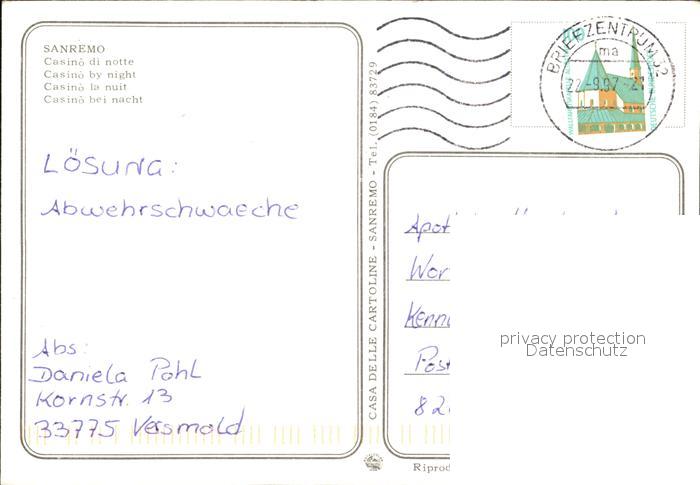 SANREMO
Casinò di notte
Casinò by night
Casinò la nuit
Casinò bei nacht
LÖSUNG:
Abwehrschwaeche
Abs:
Daniela Pohl
Kornstr. 13
33775 Versmold
CASA DELLE CARTOLINE - SANREMO - Tel. (0184) 83729
BRIEFZENTRUM 32
ma
22.-9.97.-21
Apot
Wor
Kenn
Post
82
privacy protection
Datenschutz
Riprod